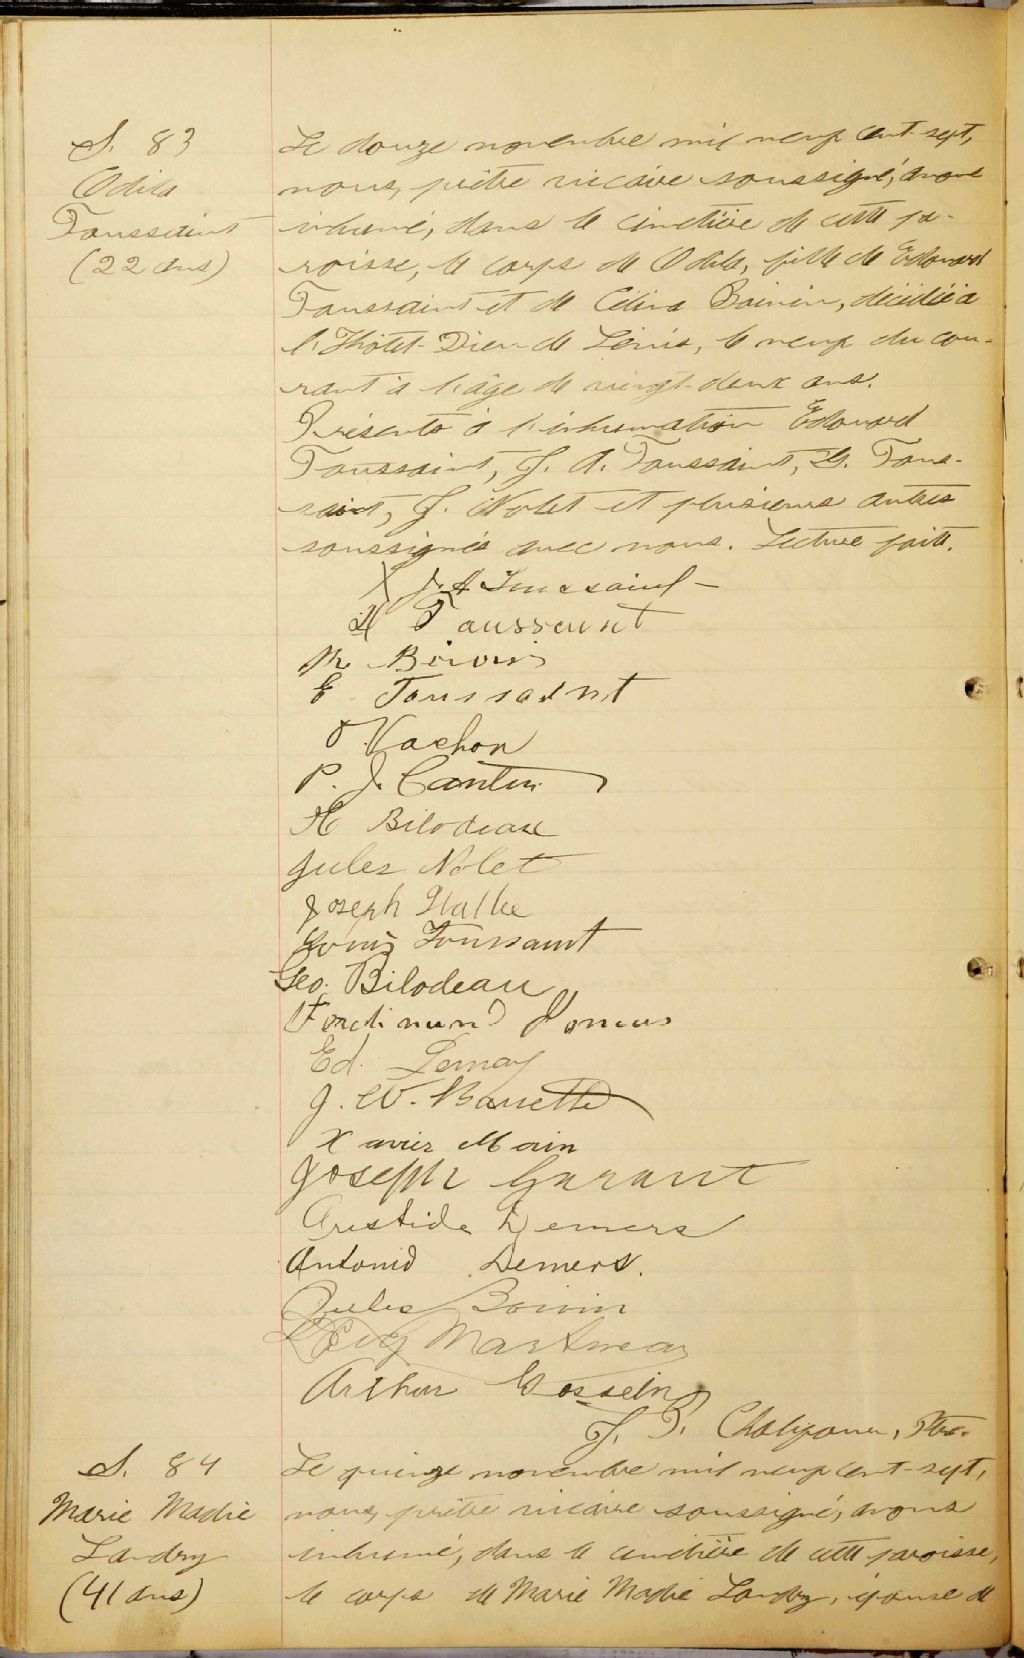 S. 83
Odila
Toussaint
(22 ans)
Le douze novembre mil neuf cent-sept,
nous, prêtre vicaire soussigné, avons
inhumé, dans le cimetière de cette pa-
roisse, le corps de Odila, fille de Edouard
Toussaint et de Célina Boivin, décédée à
l'Hôtel-Dieu de Lévis, le neuf du cou-
rant à l'âge de vingt-deux ans.
Présents à l'inhumation Edouard
Toussaint, J. A. Toussaint, G. Tous-
saint, J. Nolet et plusieurs autres
soussignés avec nous. Lecture faite.
J. A Toussaint
Toussaint
Boivin
E Toussaint
Vachon
P. J. Cantin
H Bilodeau
Jules Nolet
Joseph
Louis Toussaint
Geo. Bilodeau
Ferdinand
Ed. Lemay
J. W. Barrette
Xavier Morin
Joseph Garant
Aristide Demers
Antonio Demers.
Jules Boivin
Martineau
Arthur Gosselin
J. P. Ptre.
S. 84
Marie
Landry
(41 ans)
Le quinze novembre mil neuf cent-sept,
nous, prêtre vicaire soussigné, avons
inhumé, dans le cimetière de cette paroisse,
le corps de Marie Landry, épouse de